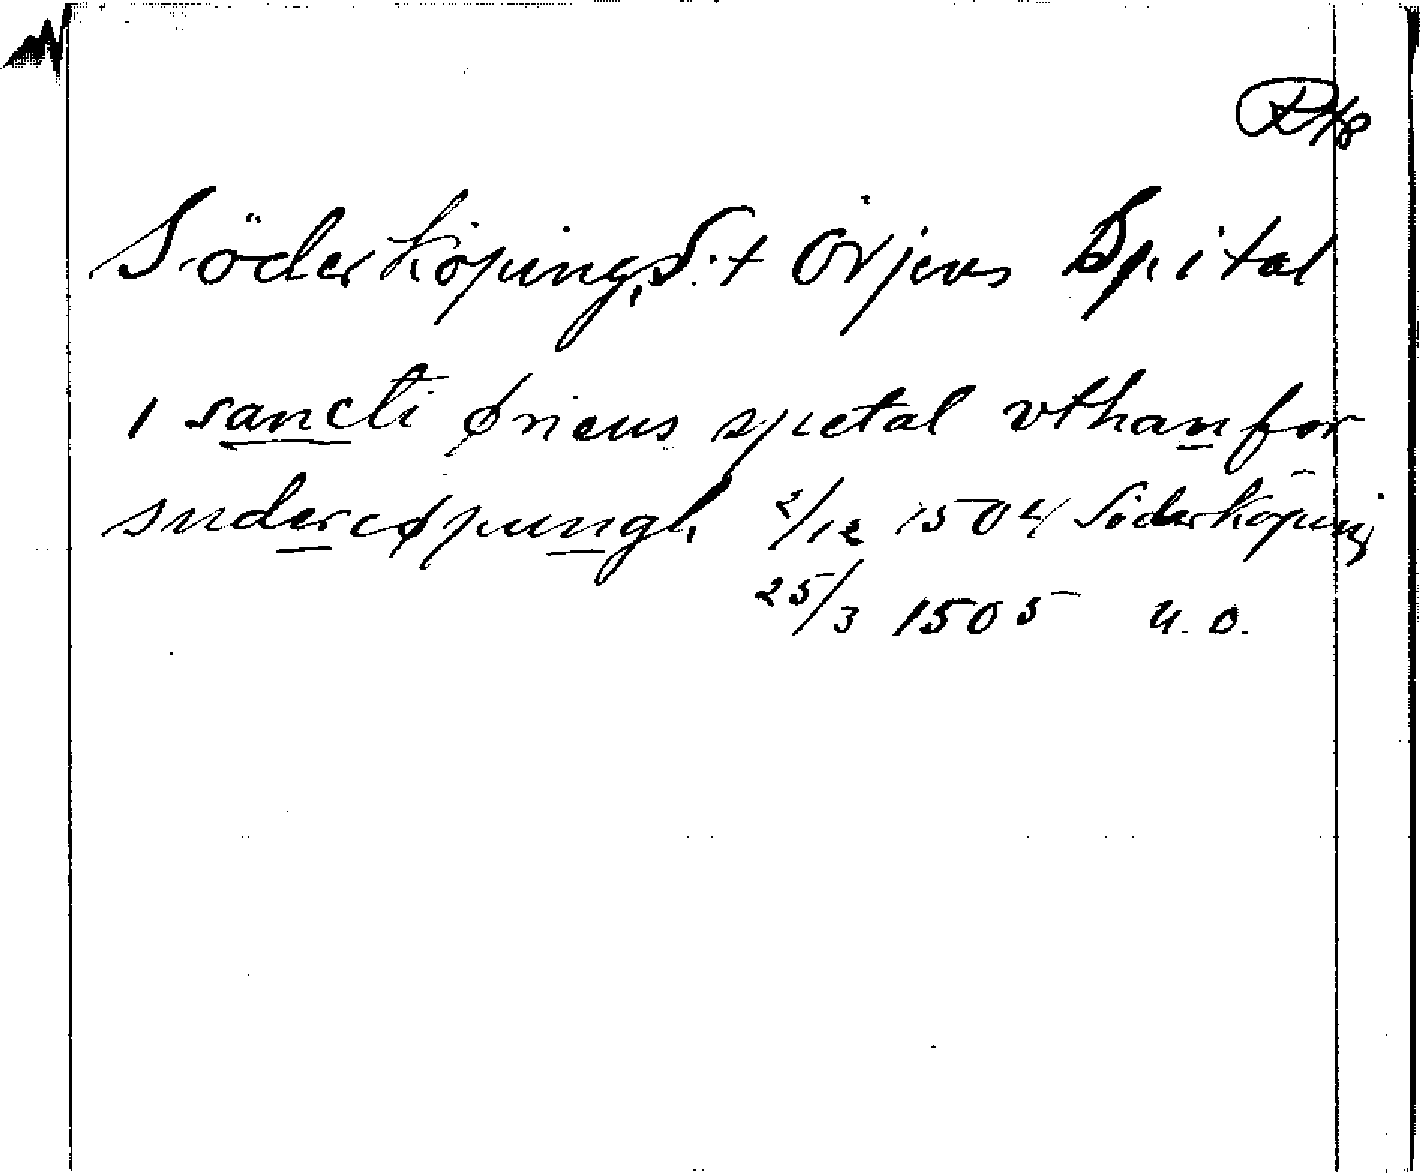 Söderköping, S:t Örjens Spital
i sancti øriens spetal vthan for
sudercøpungh 2/12 1504 Söderköping
25/3 1505 u. o.